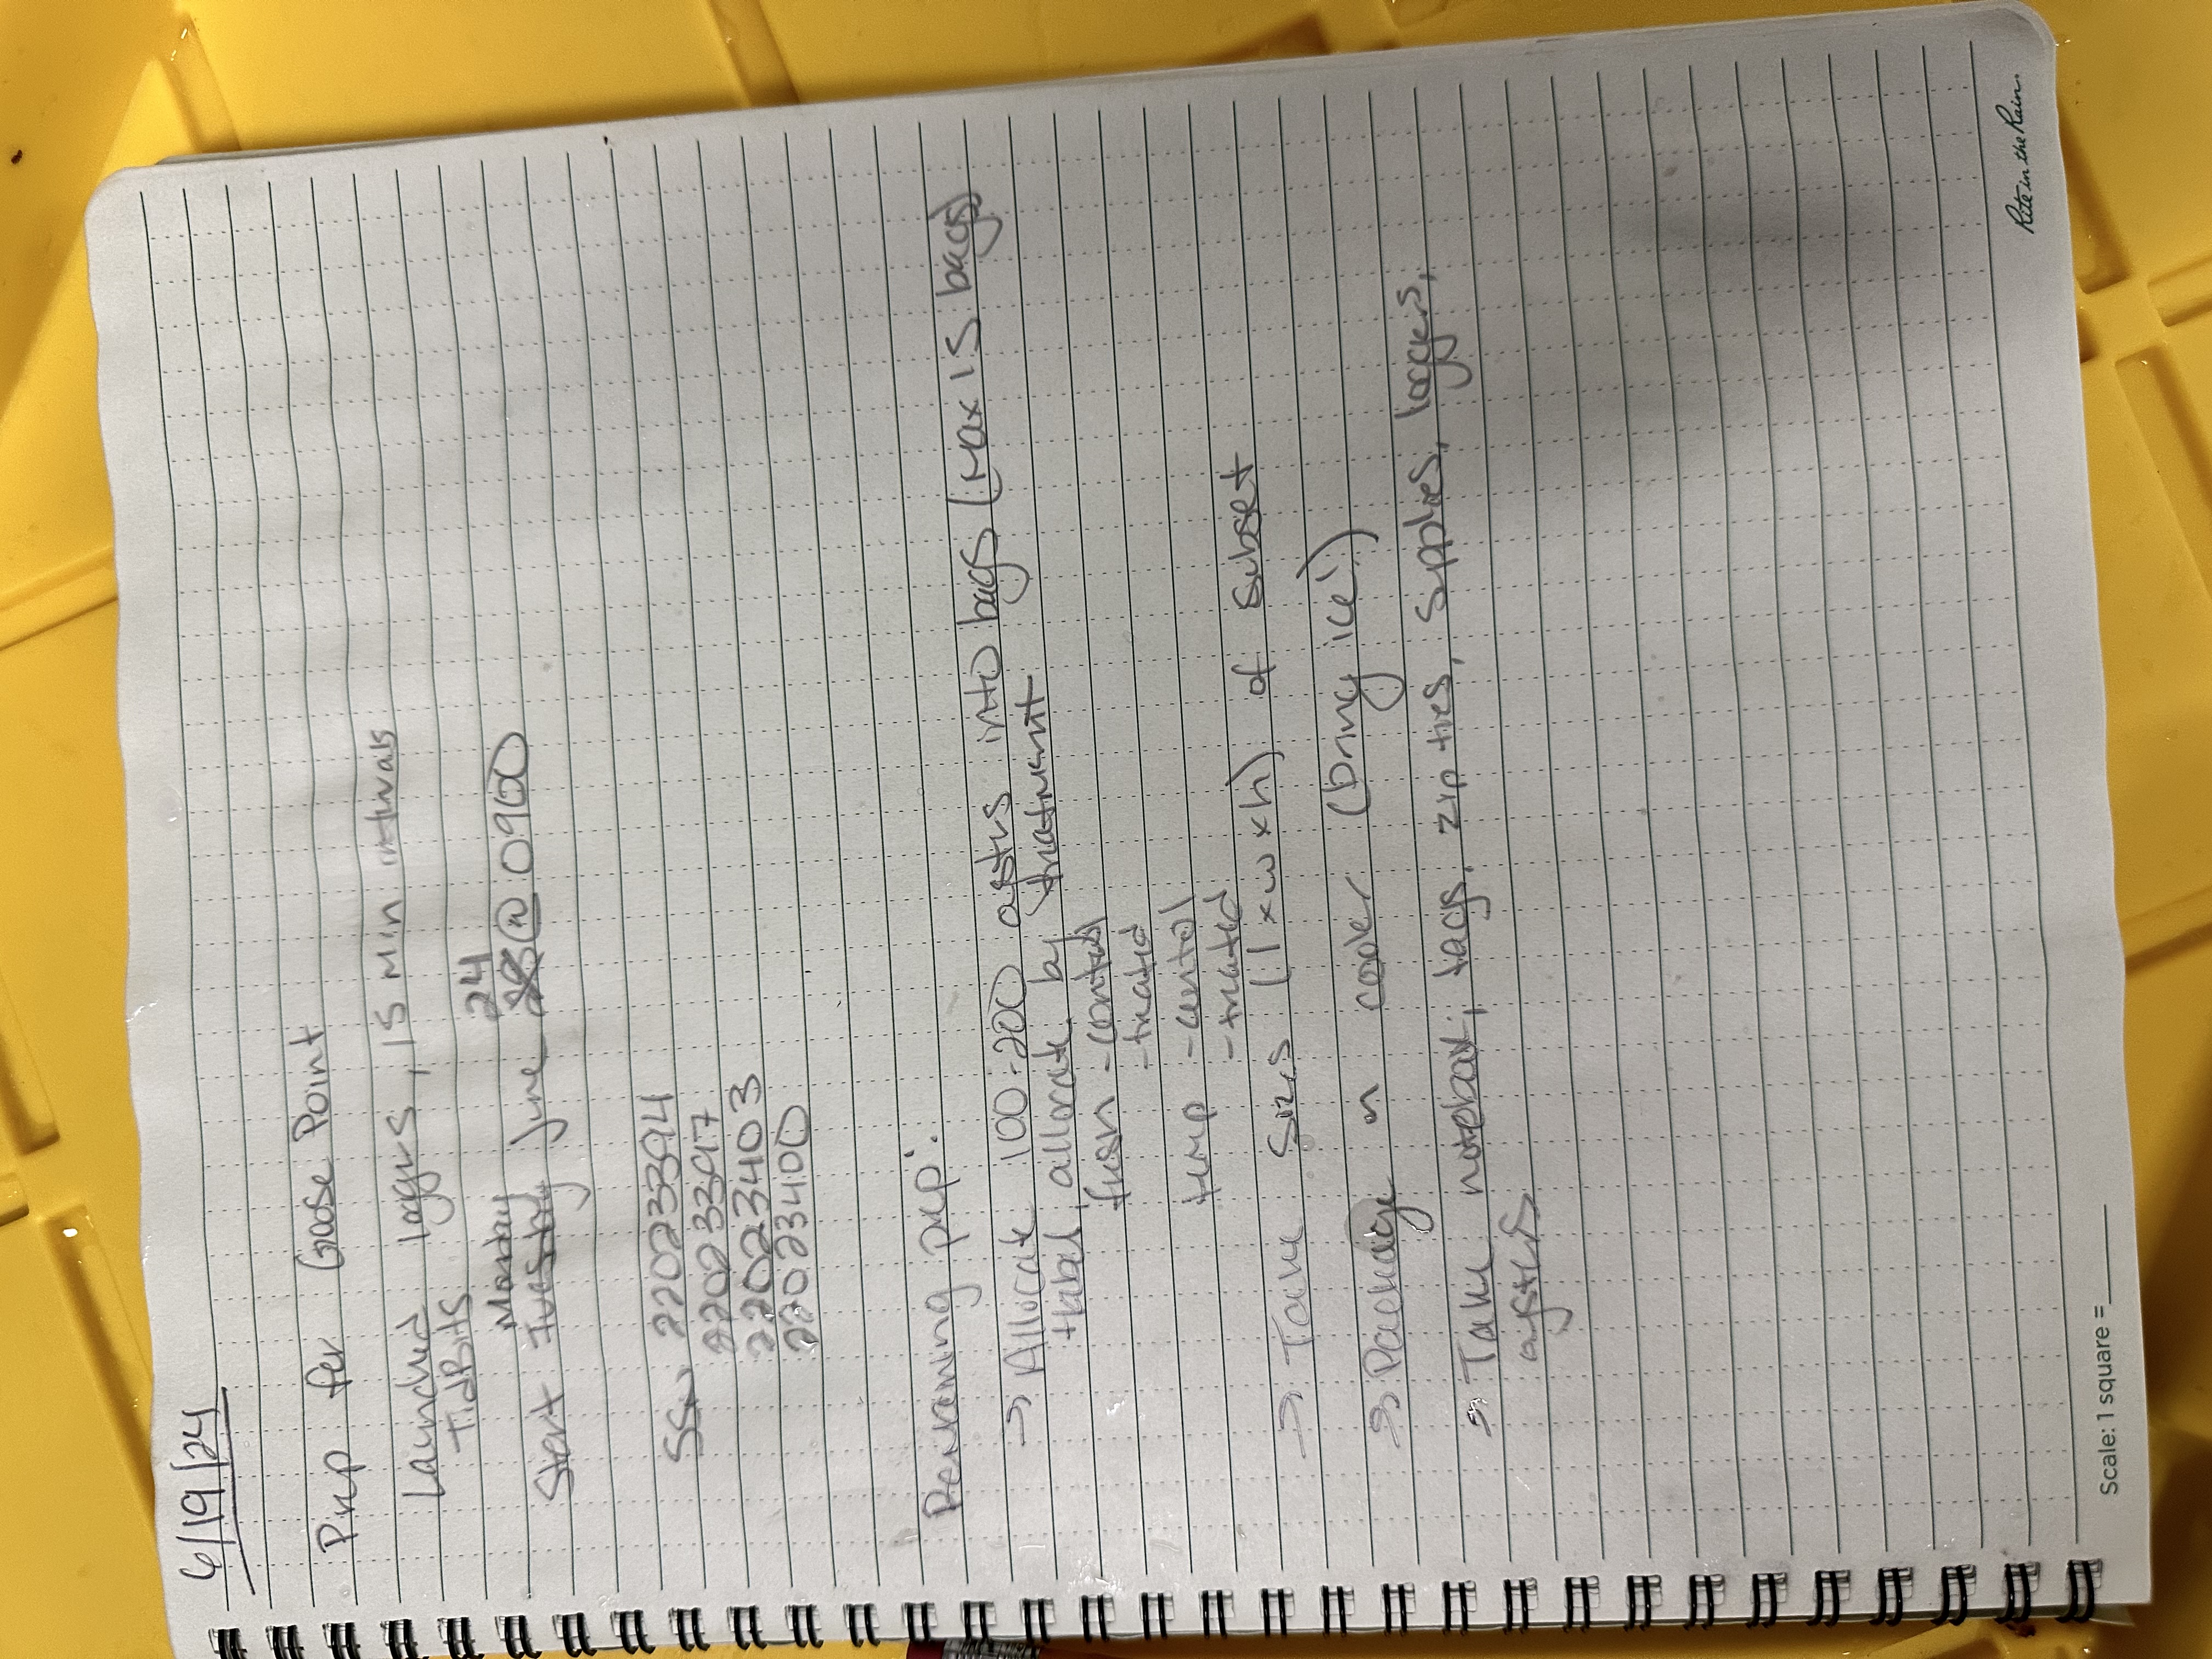 6/19/24
Prep for Goose Point
Launched loggers, 15 min intervals
TidBits
Monday 24
Start Tuesday June @ 0900
22023394
22023397
22023403
22023400
Remaining prep:
→ Allocate 100-200 oysters into bags (max 15 bags)
+label, allocate by treatment
fresh - control
- treated
temp - control
- treated
→ Take sizes (l x w x h) of subset
→ Package in cooler (bring ice!)
→ Take notebook, tags, zip ties, supplies, loggers,
oysters
Rite in the Rain.
Scale: 1 square =______